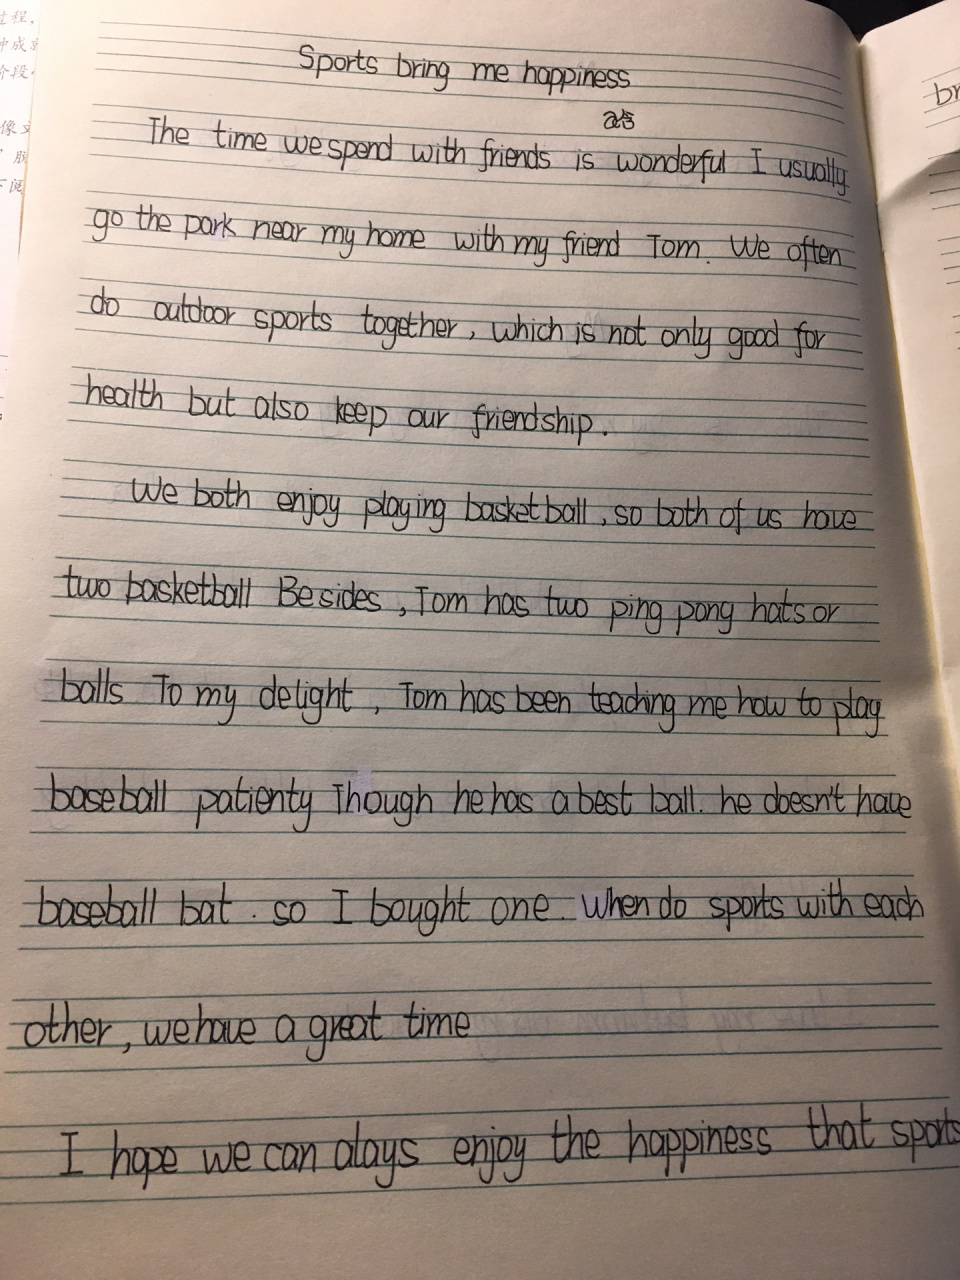 过程,
阶段
像文
Sports bring me happiness
The time we spend with friends is wonderful I usually
go the park near my home with my friend Tom. We often
do outdoor sports together, which is not only good for
health but also keep our friendship.
We both enjoy playing basketball, so both of us have
two basketball Besides, Tom has two ping pong hats or
balls To my delight, Tom has been teaching me how to play
baseball patienty Though he has a best ball. he doesn't have
baseball bat. so I bought one. When do sports with each
other, we have a great time
I hope we can alays enjoy the happiness that sports
br